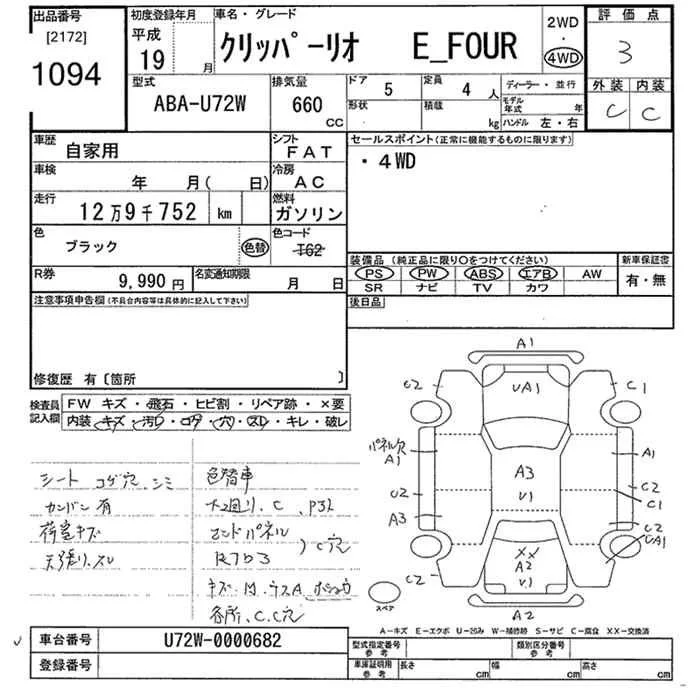 出品番号
[2172]
1094
初度登録年月
平成
19 月
車名・グレード
クリッパーリオ E_FOUR
2WD
・
4WD
評価点
3
外装 内装
C C
型式
ABA-U72W
排気量
660
CC
ドア
5
形状
定員
4 人
積載
kg
ディーラー・並行
モデル
年式 年
ハンドル 左・右
車歴
自家用
シフト
FAT
車検
年 月( 日)
冷房
AC
走行
12万9千752 km
燃料
ガソリン
色
ブラック
色替
色コード
T62
R券
9,990 円
名変通知期限
月 日
セールスポイント(正常に機能するものに限ります)
・4WD
装備品(純正品に限り○をつけてください)
PS PW ABS エアB AW
SR ナビ TV カワ
新車保証書
有・無
後日品
注意事項申告欄(不具合内容等は具体的に記入して下さい)
修復歴 有〔箇所 〕
検査員
記入欄
FW キズ・飛石・ヒビ割・リペア跡・×要
内装・キズ・汚レ・コゲ・穴・スレ・キレ・破レ
シート コゲ穴.シミ
カンバン有
荷室キズ
天張り.スレ
色替車
エンドパネル
C穴
各所、C.C穴
A1
C2
UA1
C1
パネル欠
A1
A1
A3
U1
U2
C2
C1
A3
C2
UA1
XX
A2
U1
C2
A2
スペア
A-キズ E-エクボ U-凹み W-補修跡 S-サビ C-腐食 XX-交換済
車台番号
U72W-0000682
登録番号
型式指定番号
参考
類別区分番号
参考
車庫証明用
参考
長さ cm 幅 cm 高さ cm